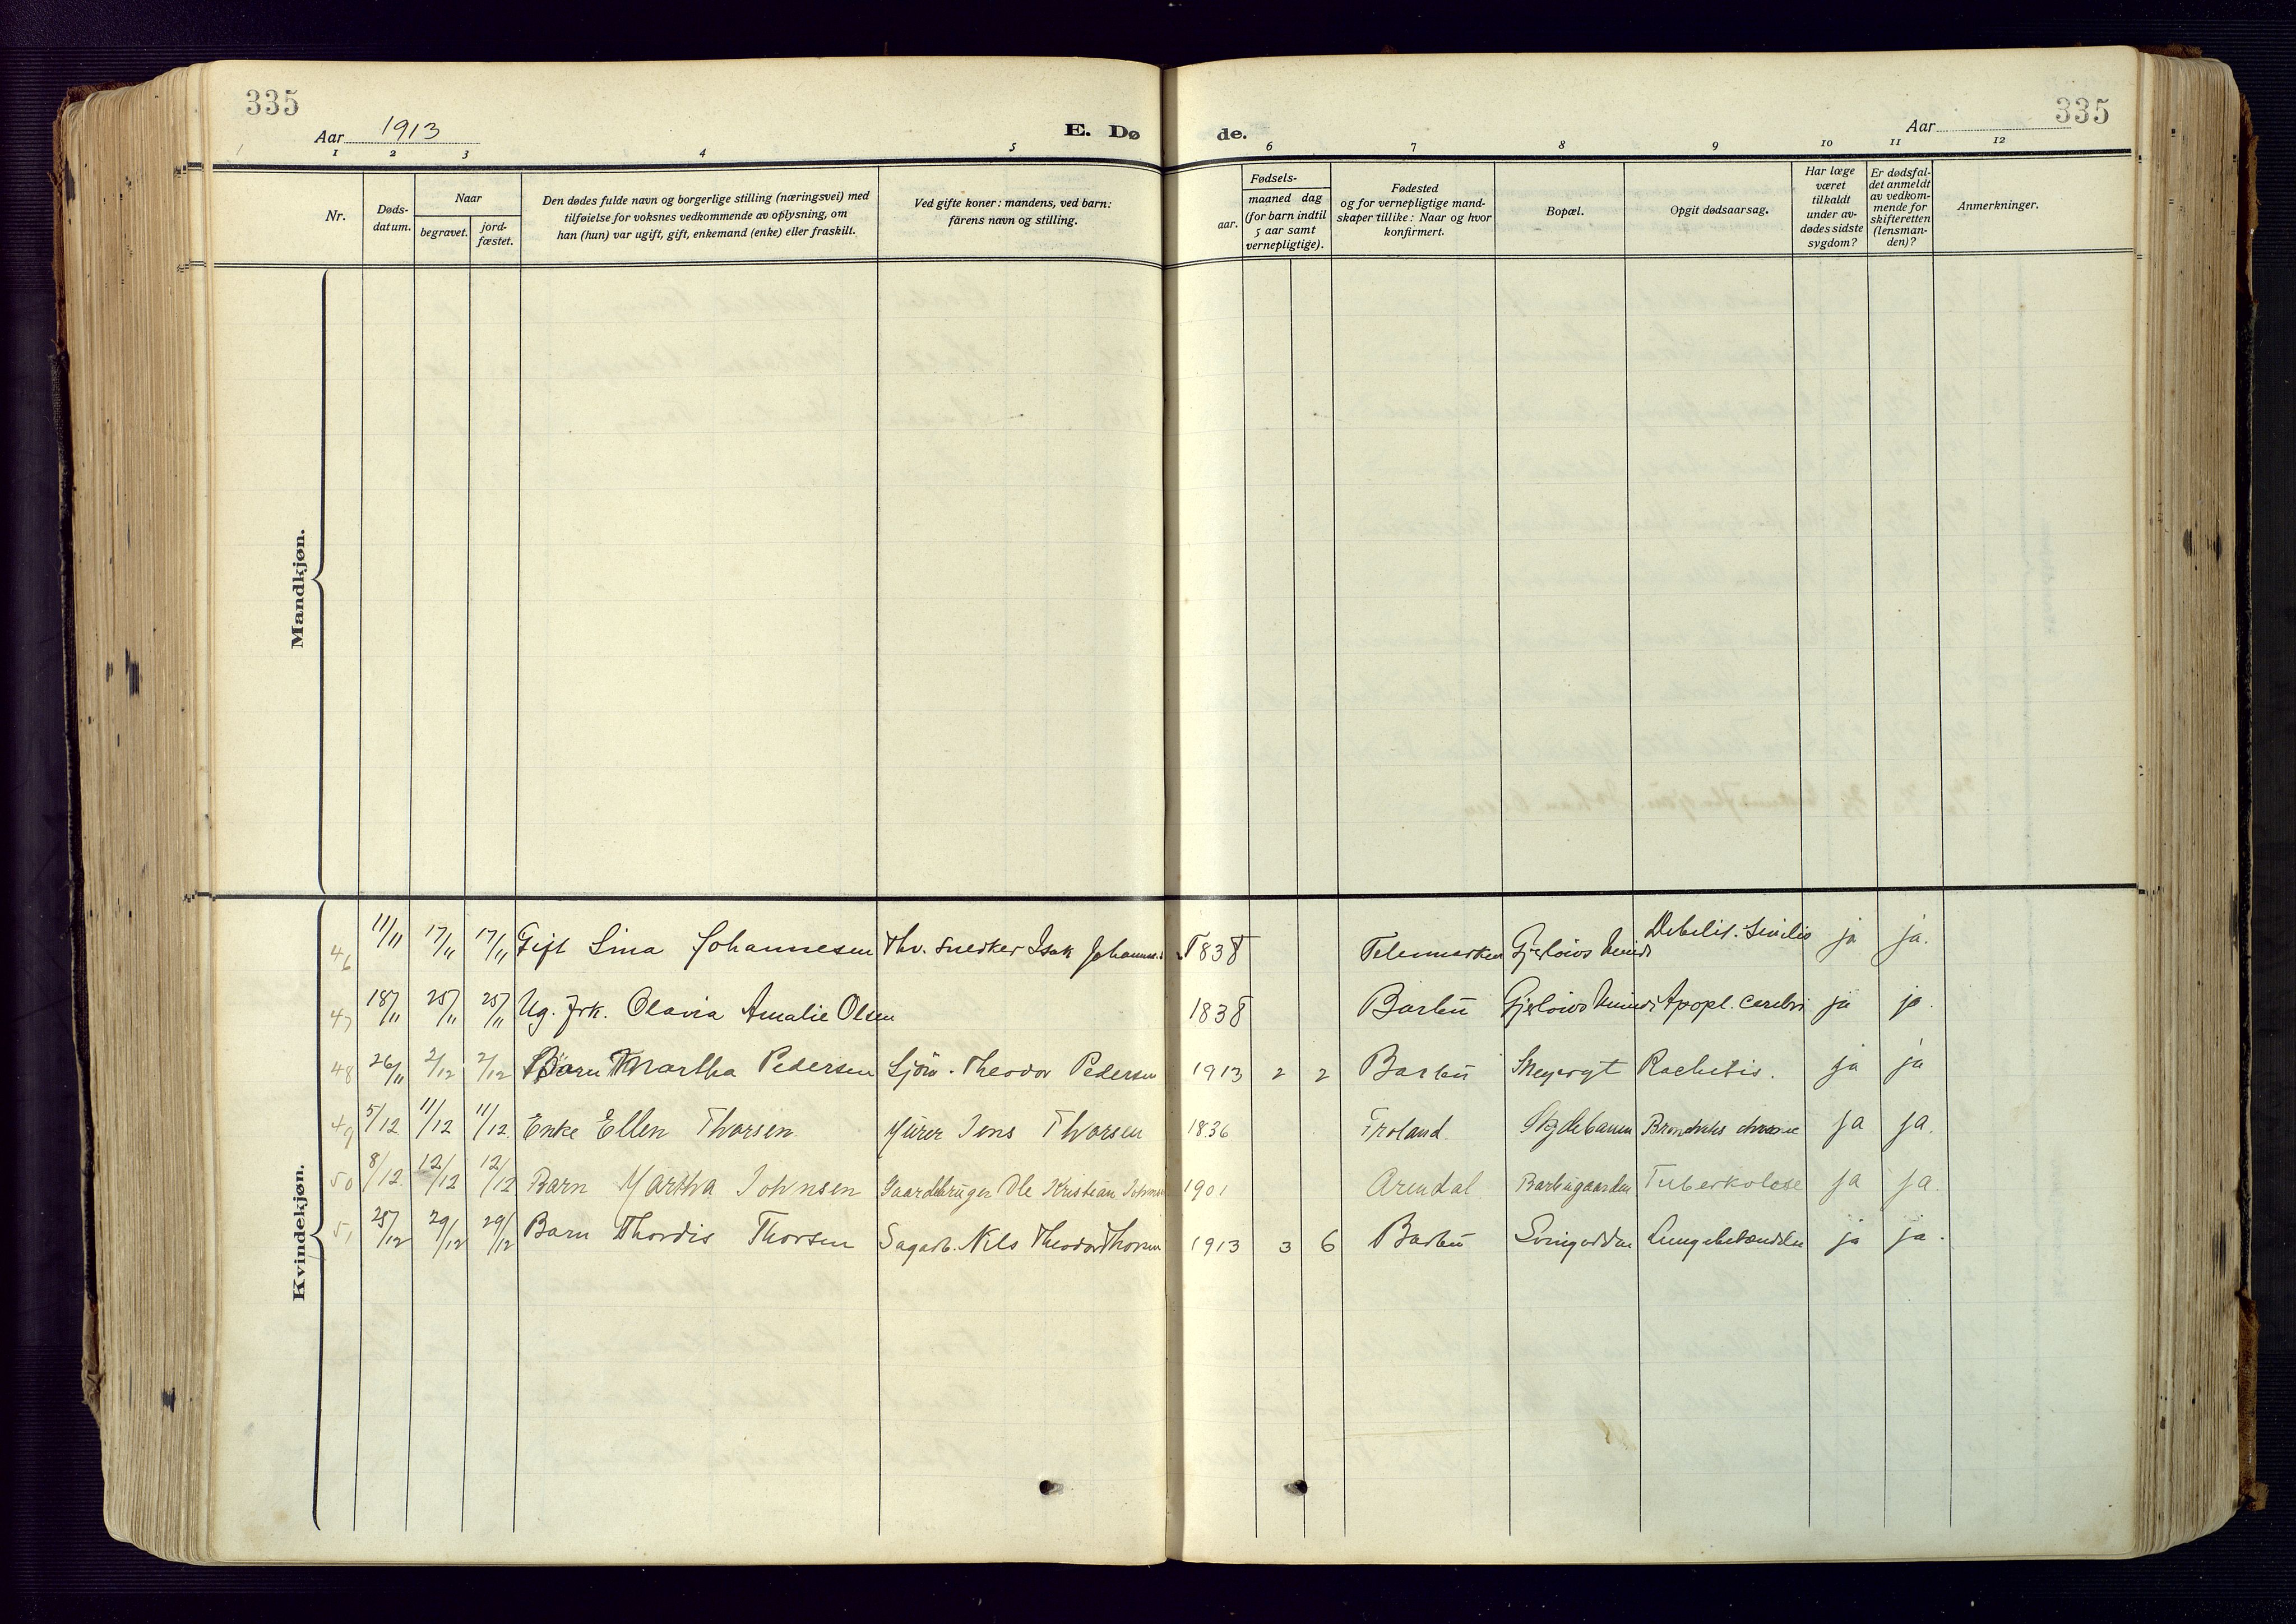 335
335
Aar 1913
E. Dø
de.
Aar
1 2 3 4 5 6 7 8 9 10 11 12
Nr.
Døds-
datum.
Naar
begravet.
jord-
fæstet.
Den dødes fulde navn og borgerlige stilling (næringsvei) med
tilføielse for voksnes vedkommende av oplysning, om
han (hun) var ugift, gift, enkemand (enke) eller fraskilt.
Ved gifte koner: mandens, ved barn:
farens navn og stilling.
Fødsels-
aar.
maaned dag
(for barn indtil
5 aar samt
vernepligtige).
Fødested
og for vernepligtige mand-
skaper tillike: Naar og hvor
konfirmert.
Bopæl.
Opgit dødsaarsag.
Har læge
været
tilkaldt
under av-
dødes sidste
sygdom?
Er dødsfal-
det anmeldt
av vedkom-
mende for
skifteretten
(lensman-
den)?
Anmerkninger.
Mandkjøn.
Kvindekjøn.
46 11/11 17/11 17/11 Gift Lina Johannesen Thv. Snedker Isak 1838 Telemarken Gjerlöws Minde Debilit. Senilis ja ja.
47 18/11 25/11 25/11 Ug. frk. Olavia Amalie Olsen 1838 Barbu Gjerlöws Minde Apopl. cerebri ja ja.
48 26/11 2/12 2/12 Barn Martha Pedersen Sjöm. Theodor Pedersen 1913 2 2 Barbu Rachitis. ja ja
49 5/12 11/12 11/12 Enke Ellen Thorsen Murer Jens Thorsen 1836 Froland ja ja.
50 8/12 12/12 12/12 Barn Martha Johnsen Gaardbruger Ole Kristian Johnsen 1901 Arendal Barbugaarden Tuberkolose ja ja.
51 25/12 29/12 29/12 Barn Thordis Thorsen Sagarb. Nils Theodor Thorsen 1913 3 6 Barbu Lungebetændelse ja ja.